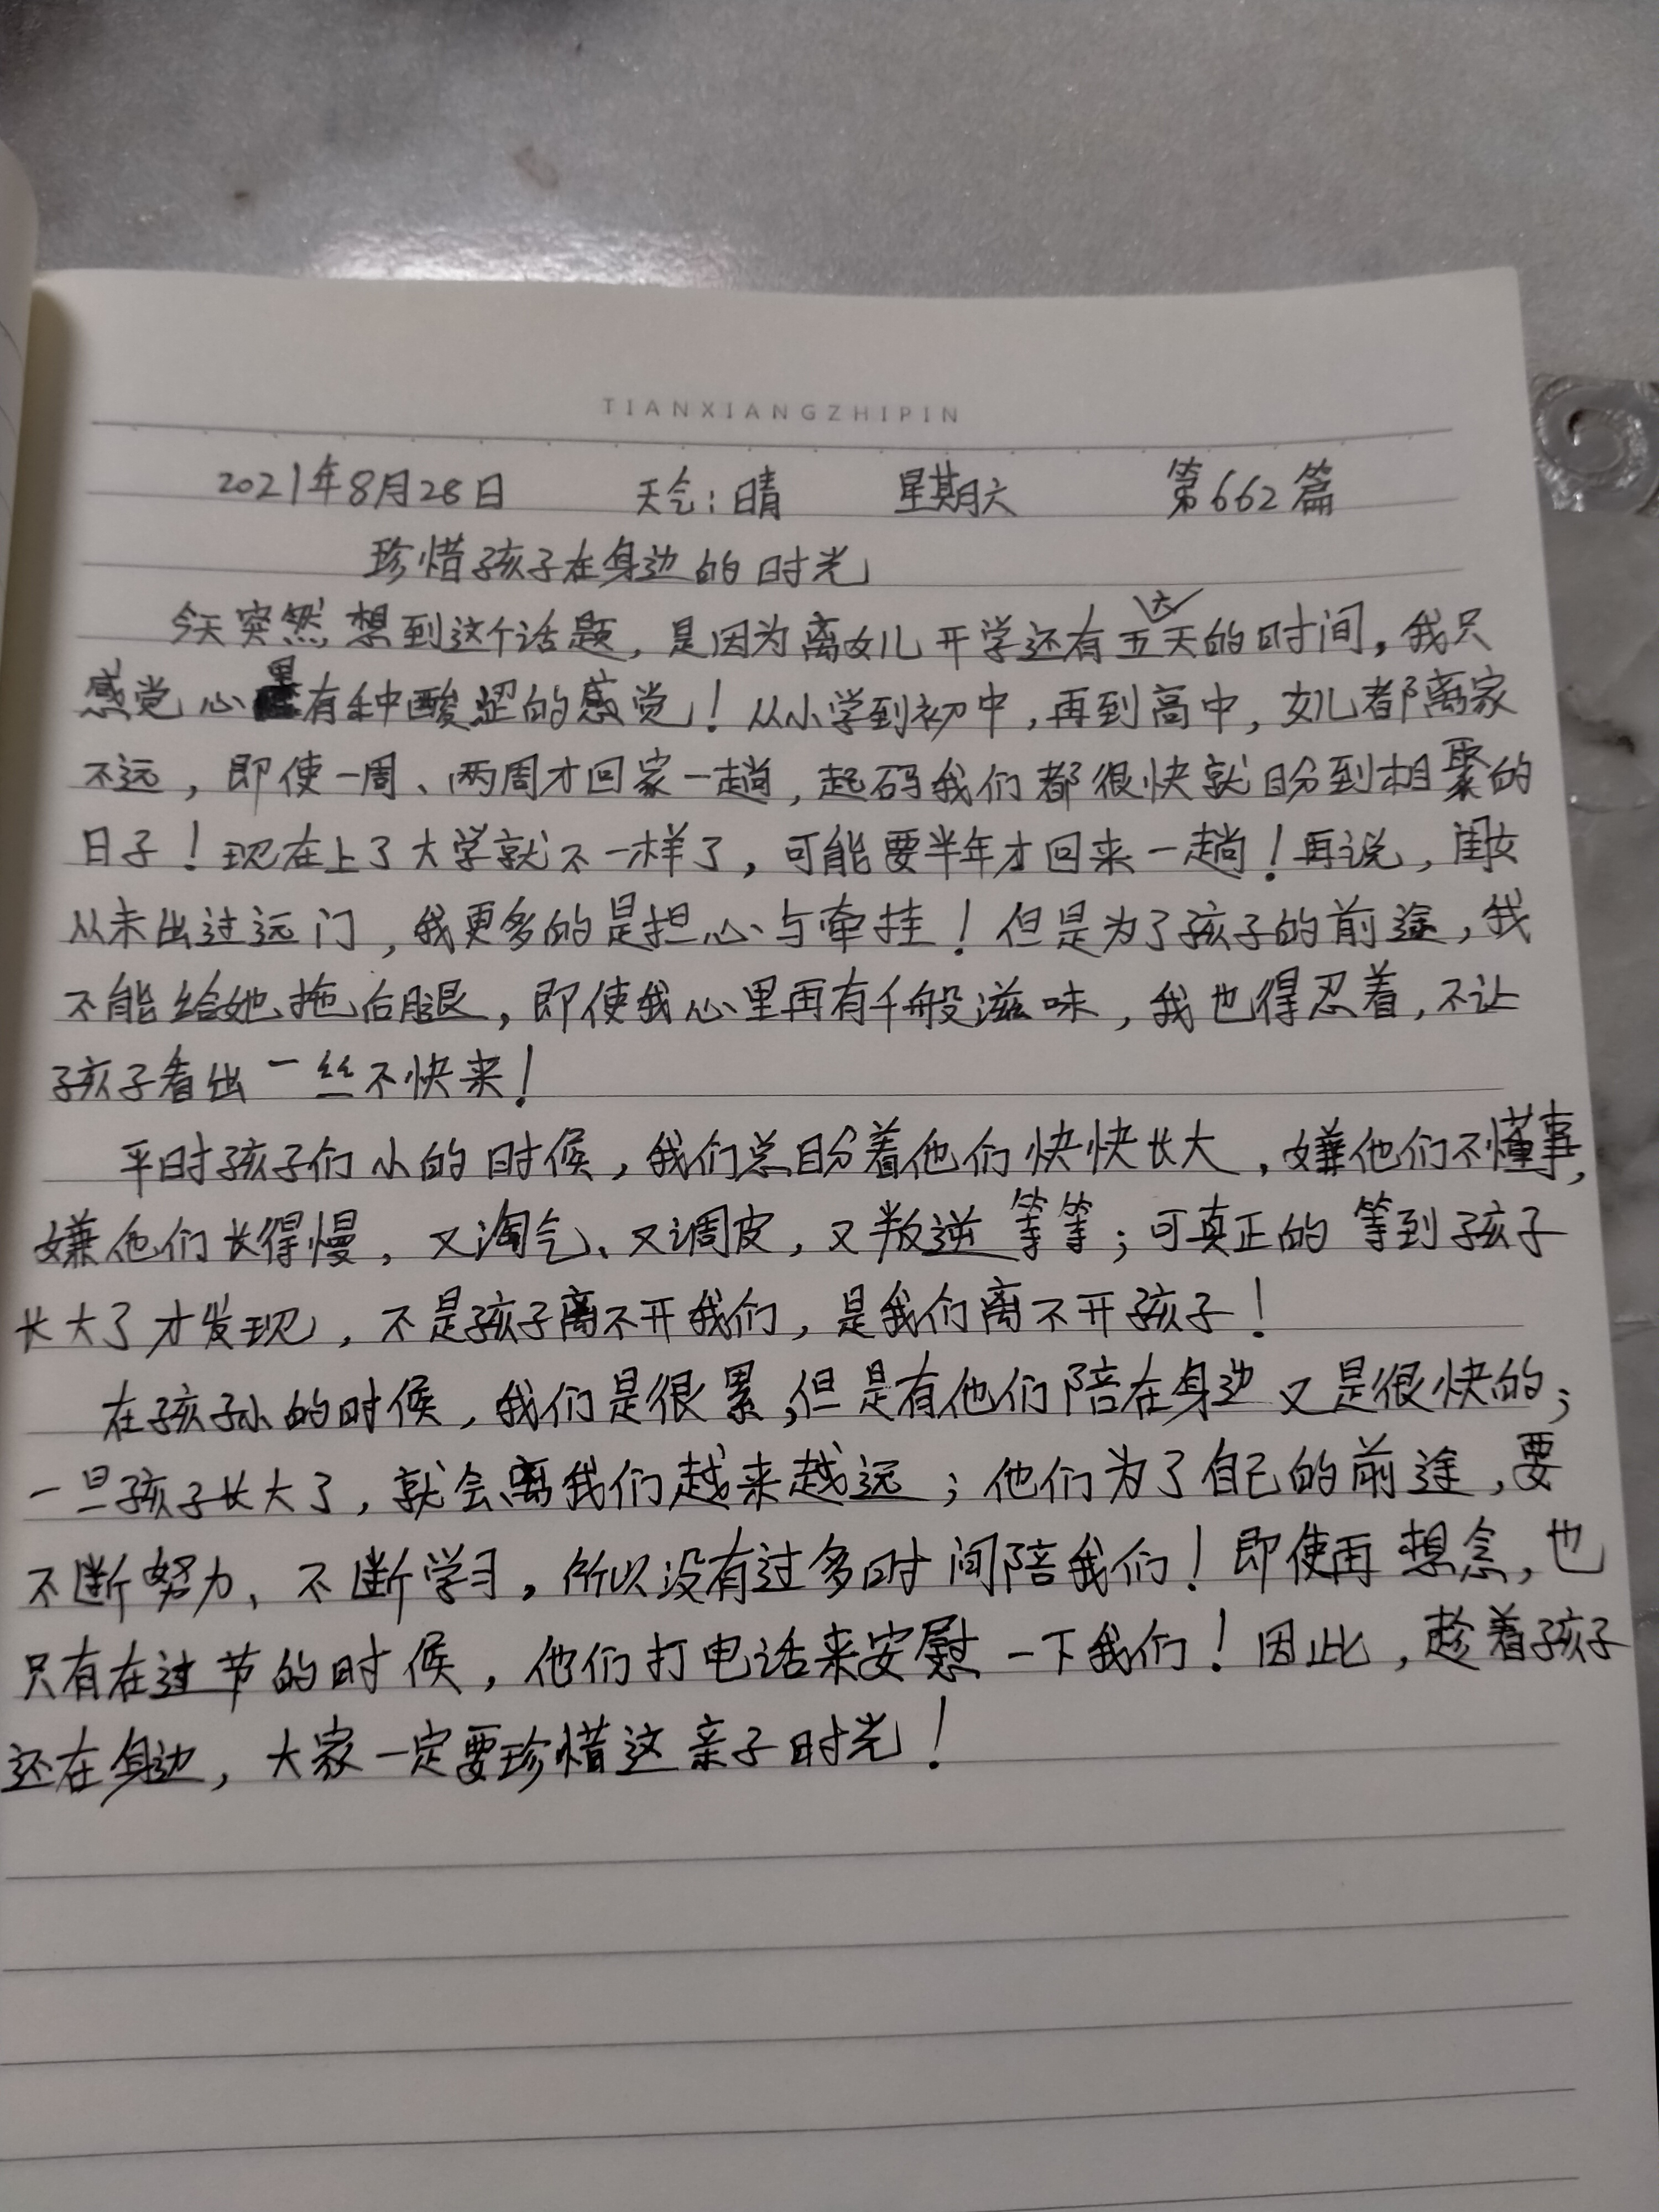 TIANXIANGZHIPIN
2021年8月28日 天气:晴 星期六 第662篇
珍惜孩子在身边的时光
今天突然想到这个话题,是因为离女儿开学还有五六天的时间,我只
感觉心里有种酸涩的感觉!从小学到初中,再到高中,女儿都离家
不远,即使一周、两周才回家一趟,起码我们都很快就盼到相聚的
日子!现在上了大学就不一样了,可能要半年才回来一趟!再说,闺女
从未出过远门,我更多的是担心与牵挂!但是为了孩子的前途,我
不能给她拖后腿,即使我心里再有千般滋味,我也得忍着,不让
孩子看出一丝不快来!
平时孩子们小的时候,我们总盼着他们快快长大,嫌他们不懂事,
嫌他们长得慢,又淘气、又调皮,又叛逆等等;可真正的等到孩子
长大了才发现,不是孩子离不开我们,是我们离不开孩子!
在孩子小的时候,我们是很累,但是有他们陪在身边又是很快的;
一旦孩子长大了,就会离我们越来越远;他们为了自己的前途,要
不断努力、不断学习,所以没有过多时间陪我们!即使再想念,也
只有在过节的时候,他们打电话来安慰一下我们!因此,趁着孩子
还在身边,大家一定要珍惜这亲子时光!